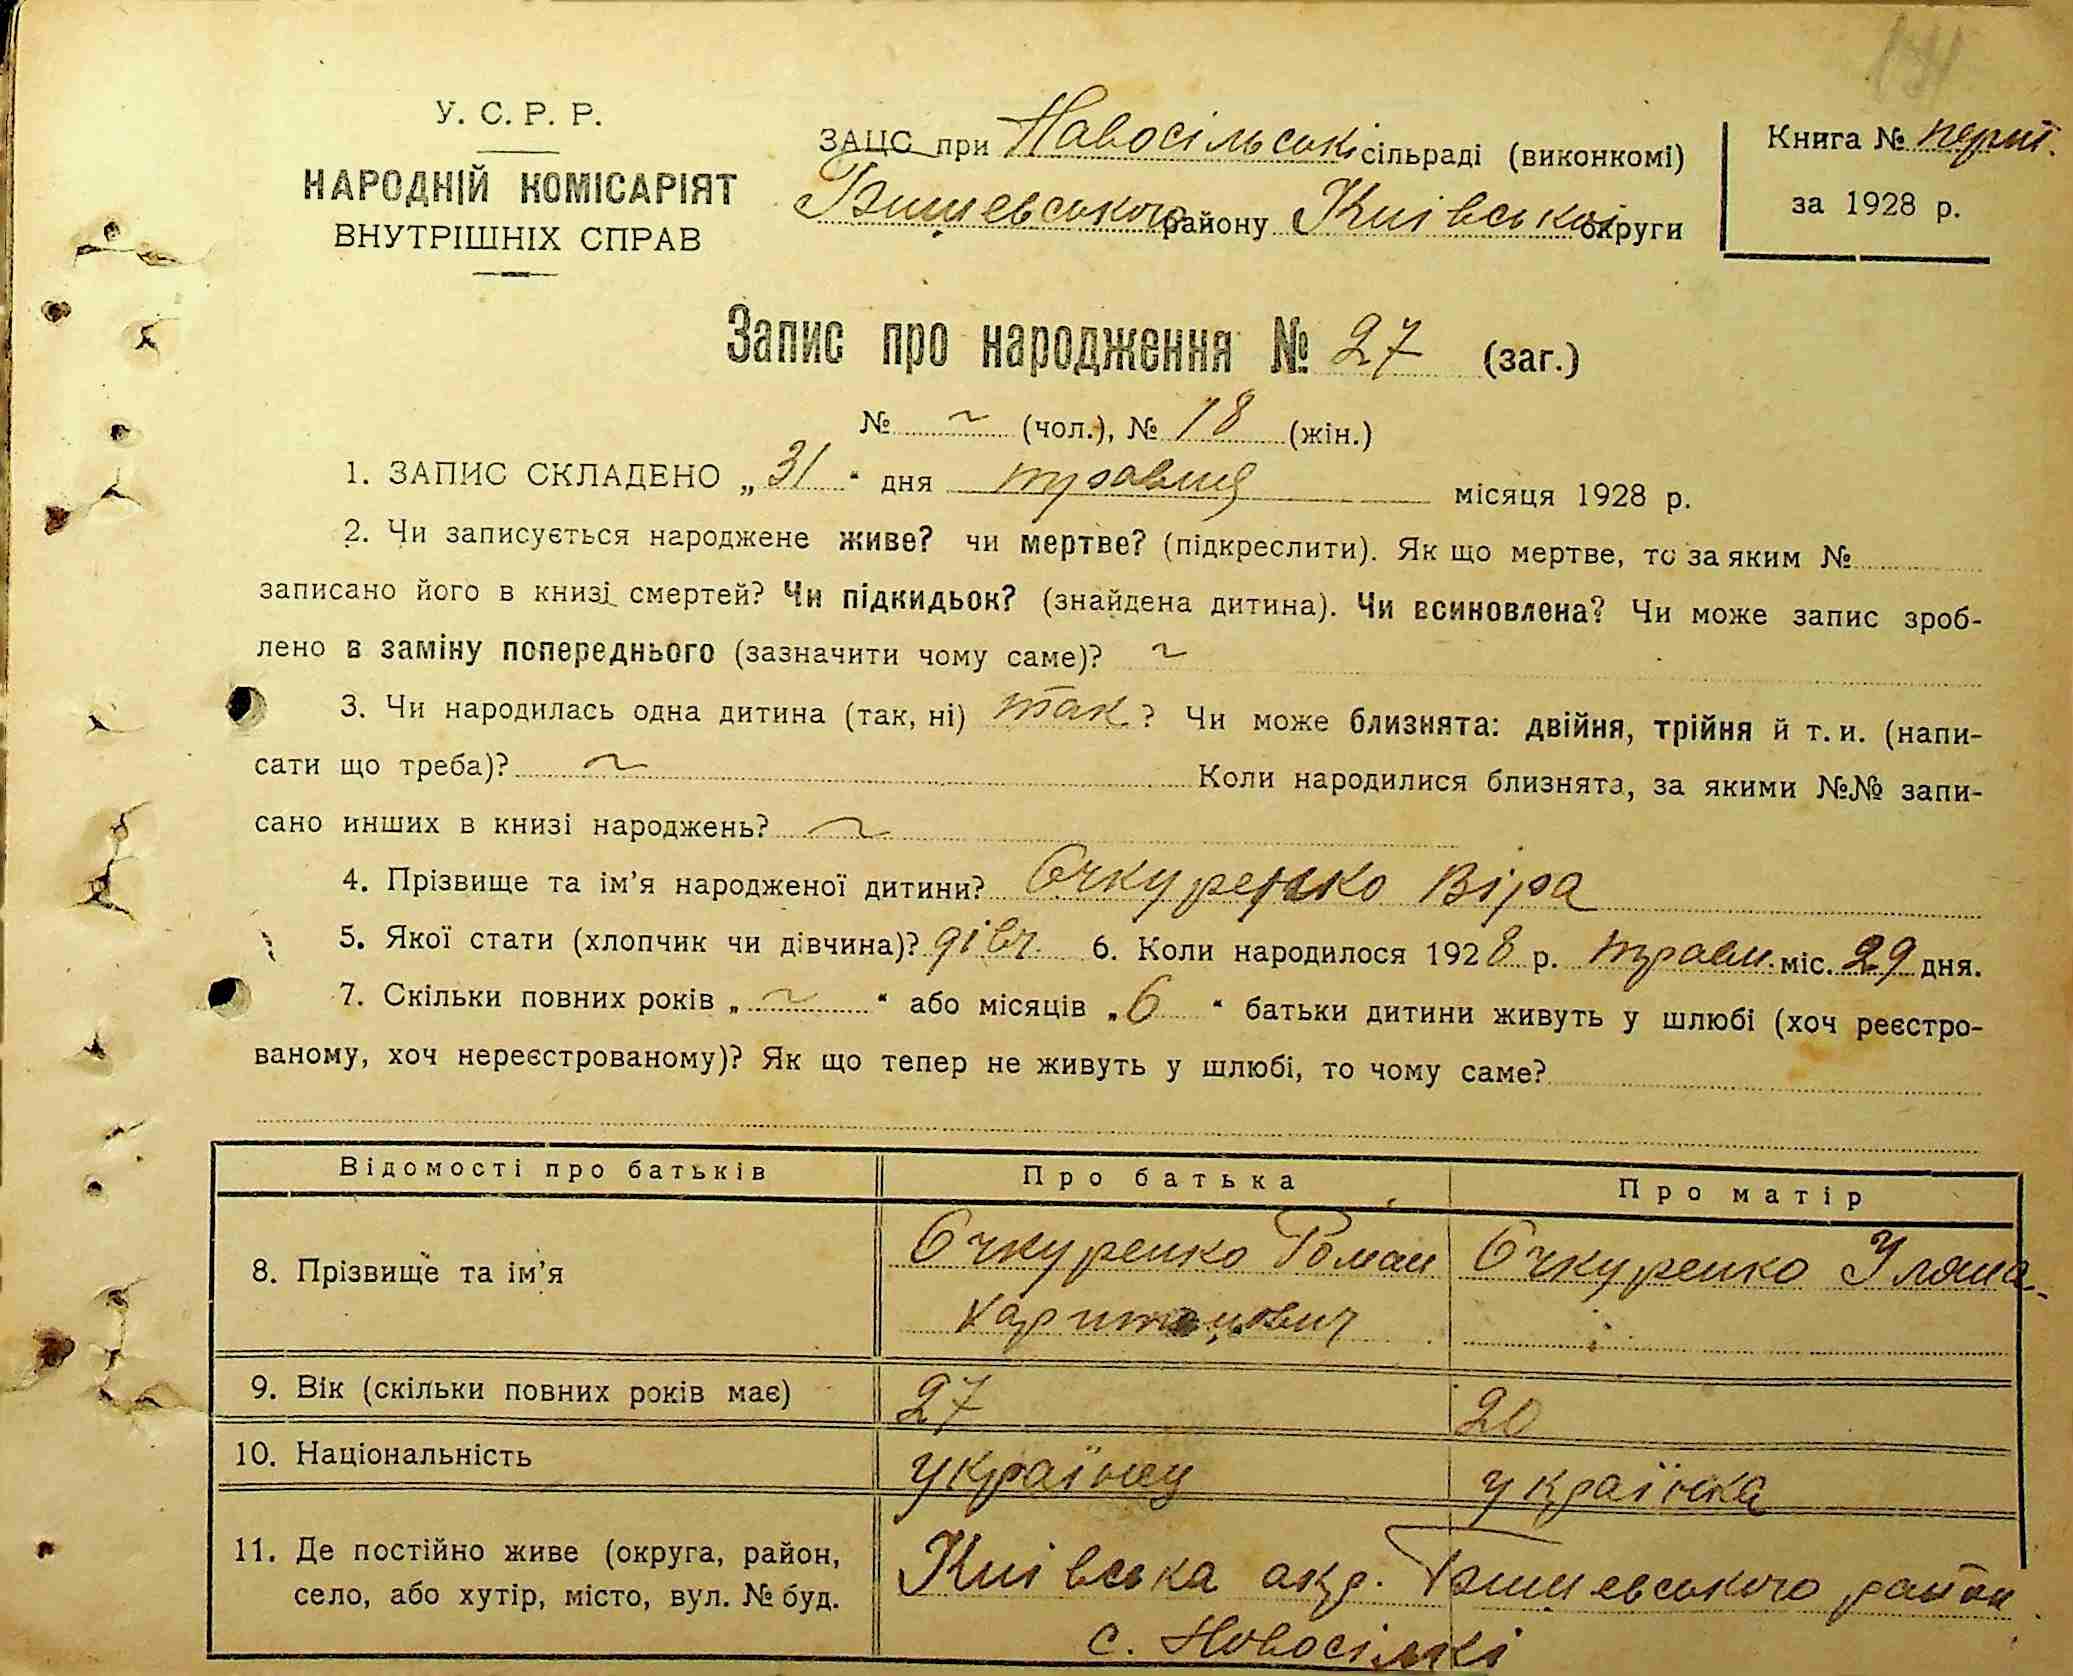 У. С. Р. Р.
НАРОДНІЙ КОМІСАРІЯТ
ВНУТРІШНІХ СПРАВ
ЗАЦС при Новосільські сільраді (виконкомі)
Бишевського району Київської округи
Книга № перш.
за 1928 р.
Запис про народження № 27 (заг.)
№ ~ (чол.), № 18 (жін.)
1. ЗАПИС СКЛАДЕНО „31“ дня травня місяця 1928 р.
2. Чи записується народжене живе? чи мертве? (підкреслити). Як що мертве, то за яким №
записано його в книзі смертей? Чи підкидьок? (знайдена дитина). Чи всиновлена? Чи може запис зроб-
лено в заміну попереднього (зазначити чому саме)? ~
3. Чи народилась одна дитина (так, ні) так? Чи може близнята: двійня, трійня й т. и. (напи-
сати що треба)? ~ Коли народилися близнята, за якими №№ запи-
сано инших в книзі народжень? ~
4. Прізвище та ім'я народженої дитини? Очкуренко Віра
5. Якої стати (хлопчик чи дівчина)? дівч. 6. Коли народилося 1928 р. травн. міс. 29 дня.
7. Скільки повних років „ ~ “ або місяців „6“ батьки дитини живуть у шлюбі (хоч реєстро-
ваному, хоч нереєстрованому)? Як що тепер не живуть у шлюбі, то чому саме?
Відомості про батьків Про батька Про матір
8. Прізвище та ім'я Очкуренко Роман Очкуренко Уляна
Харитонович
9. Вік (скільки повних років має) 27 20
10. Національність українец українка
11. Де постійно живе (округа, район, Київська окр. Бишевського район
село, або хутір, місто, вул. № буд. с. Новосілкі